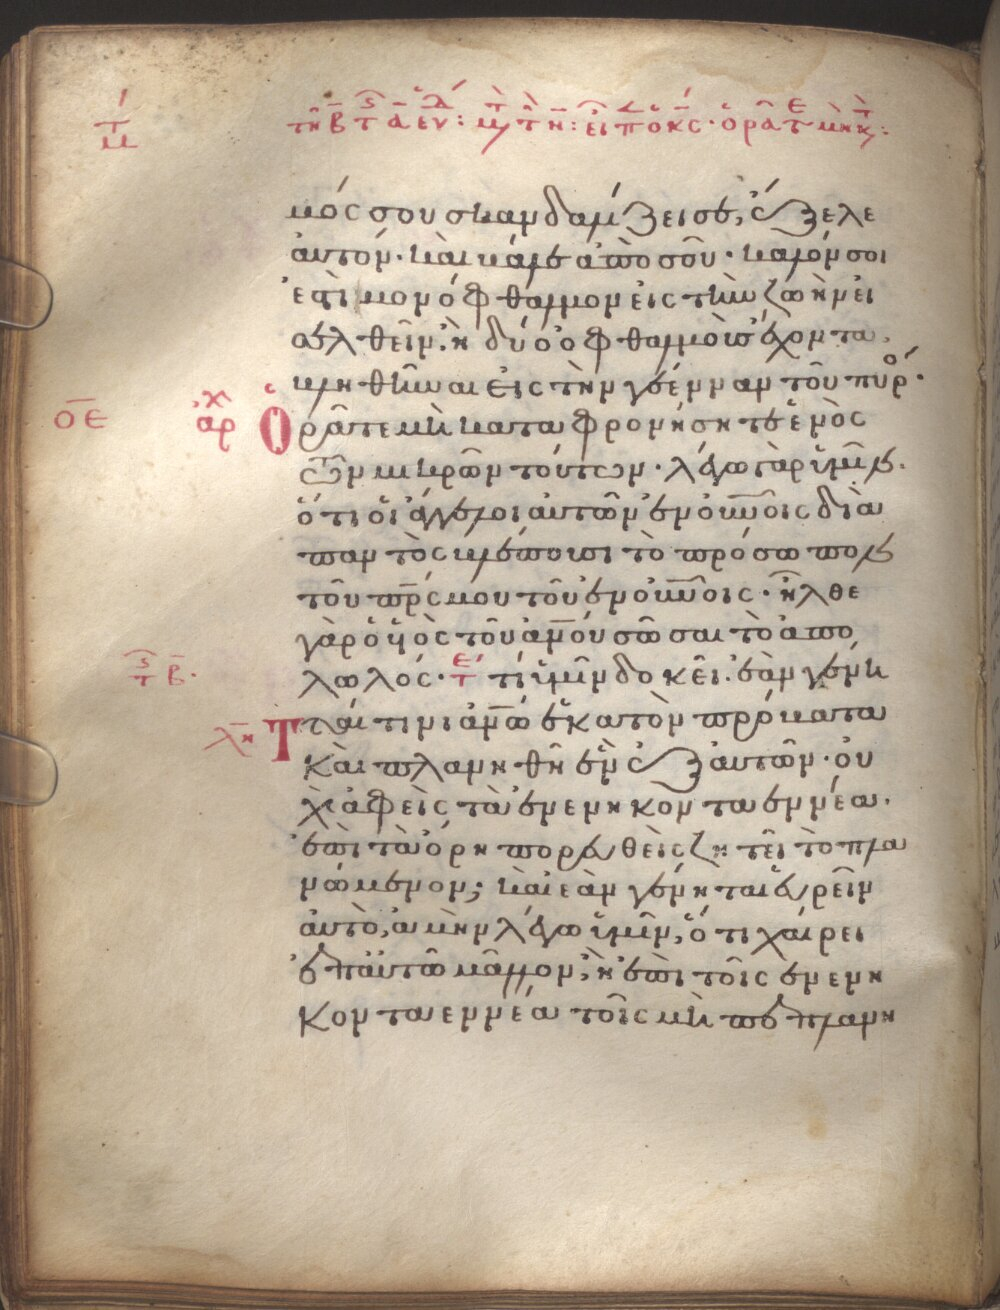 μός σου σκανδαλίζει σε, ἔξελε
αὐτόν· καὶ βάλε ἀπὸ σοῦ· καλόν σοι
ἐστὶ μονόφθαλμον εἰς τὴν ζωὴν εἰ
σελθεῖν, ἢ δύο ὀφθαλμοὺς ἔχοντα
βληθῆναι εἰς τὴν γέενναν τοῦ πυρό·
οε ἀρχ Ὁρᾶτε μὴ καταφρονήσητε ἑνὸς
τῶν μικρῶν τούτων· λέγω γὰρ ὑμῖν·
ὅτι οἱ ἄγγελοι αὐτῶν ἐν οὐνοῖς διὰ
παντὸς βλέπουσι τὸ πρόσωπον
τοῦ πρς μου τοῦ ἐν οὐνοῖς· ἦλθε
γὰρ ὁ υἱὸς τοῦ ἀνου σῶσαι τὸ ἀπο
λωλός· τε τί ὑμῖν δοκεῖ. ἐὰν γένη
ταί τινι ἀνω ἑκατὸν πρόβατα
καὶ πλανηθῆ ἓν ἐξ αὐτῶν· οὐ
χὶ ἀφεὶς τὰ ἐνενηκονταεννέα·
ἐπὶ τὰ ὄρη πορευθεὶς ζητεῖ τὸ πλα
νώμενον; καὶ ἐὰν γένηται εὑρεῖν
αὐτὸ, ἀμὴν λέγω ὑμῖν, ὅτι χαίρει
ἐπ' αὐτῶ μᾶλλον, ἢ ἐπὶ τοῖς ἐνενη
κονταεννέα τοῖς μὴ πεπλανη